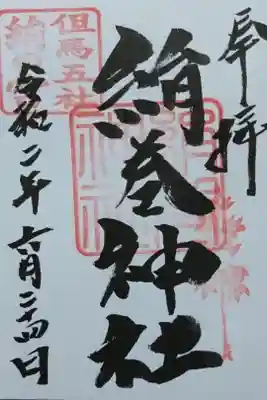 奉拝
絹巻神社
但馬五社
令和二年六月二十四日